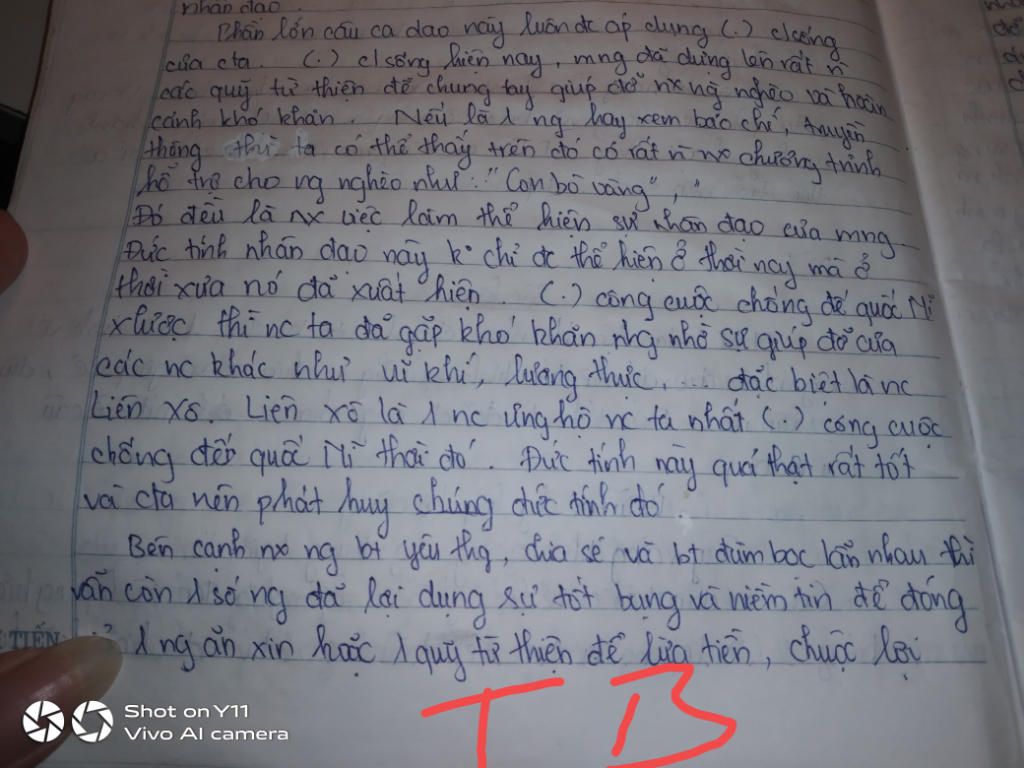 nhân đạo.
Phần lớn câu ca dao này luôn đc áp dụng (.) c/sống
của cta. (.) c/sống hiện nay, mng đã dựng lên rất n
các quỹ từ thiện để chung tay giúp đỡ nx ng nghèo và hoàn
cảnh khó khăn. Nếu là 1 ng hay xem báo chí, truyền
thông thì ta có thể thấy trên đó có rất n nx chương trình
hỗ trợ cho ng nghèo như: "Con bò vàng", "
Đó đều là nx việc làm thể hiện sự nhân đạo của mng.
Đức tính nhân đạo này k° chỉ đc thể hiện ở thời nay mà ở
thời xưa nó đã xuất hiện. (.) công cuộc chống đế quốc Mĩ
xlược thì nc ta đã gặp khó khăn nhg nhờ sự giúp đỡ của
các nc khác như vũ khí, lương thực, ... đặc biệt là nc
Liên Xô. Liên xô là 1 nc ủng hộ nc ta nhất (.) công cuộc
chống đế quốc Mĩ thời đó. Đức tính này quả thật rất tốt
và cta nên phát huy chúng đức tính đó.
Bên cạnh nx ng bt yêu thg, chia sẻ và bt đùm bọc lẫn nhau thì
vẫn còn 1 số ng đã lợi dụng sự tốt bụng và niềm tin để đóng
TIẾN 1 ng ăn xin hoặc 1 quỹ từ thiện để lừa tiền, chuộc lợi
T B
Shot on Y11
Vivo AI camera